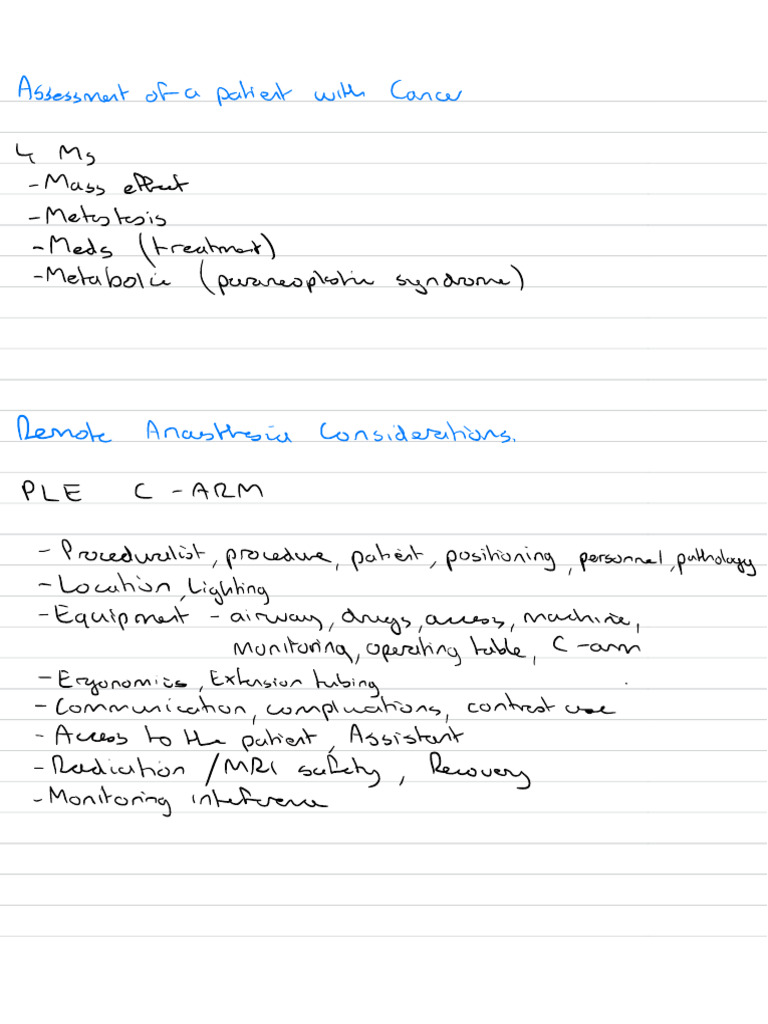 Assessment of a patient with Cancer
4 Ms
- Mass effect
- Metastasis
- Meds (treatment)
- Metabolic (paraneoplastic syndrome)
Remote Anasthesia Considerations.
PLE C-ARM
- Proceduralist, procedure, patient, positioning, personnel, pathology
- Location, Lighting
- Equipment - airway, drugs, access, machine,
monitoring, operating table, C-arm
- Ergonomics, Extension tubing
- Communication, complications, contrast use
- Access to the patient, Assistant
- Radiation / MRI safety, Recovery
- Monitoring interference